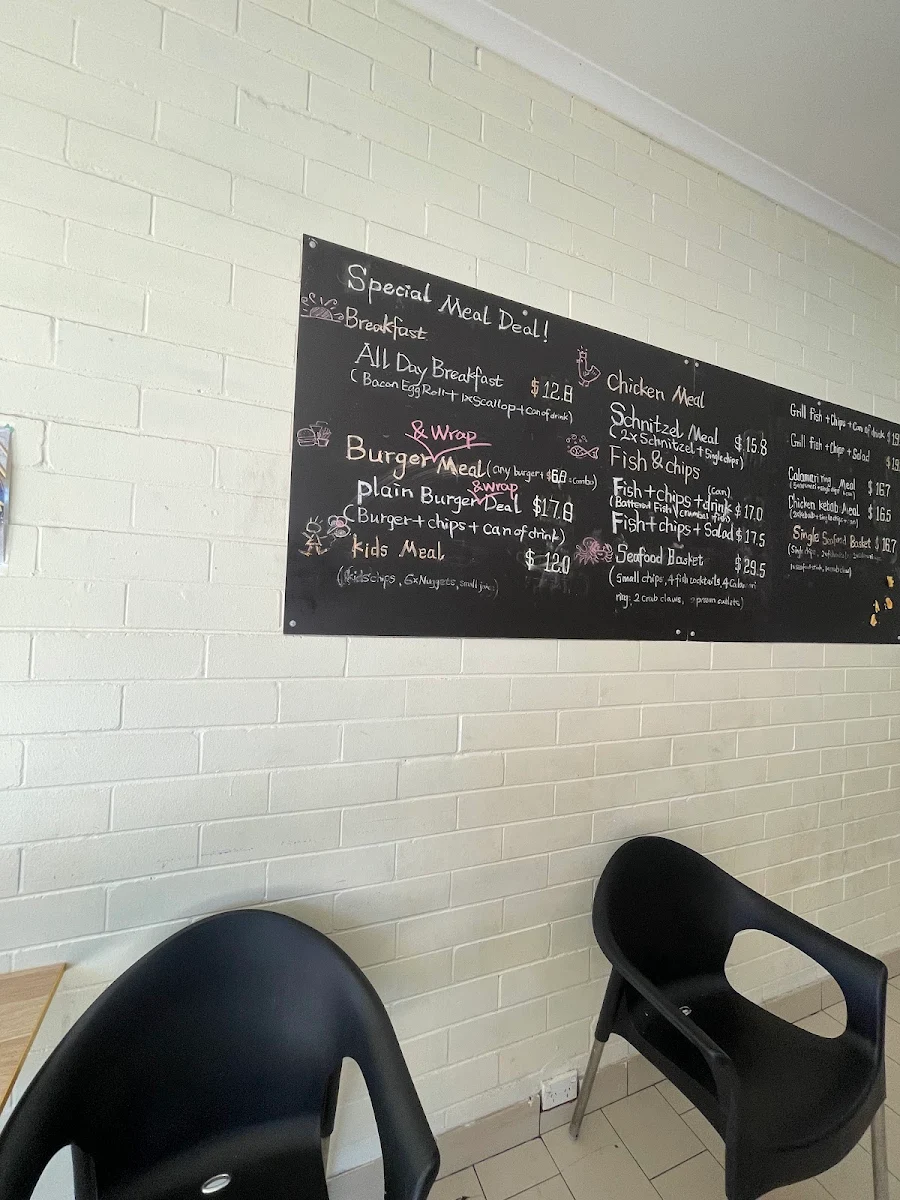 Special Meal Deal!
Breakfast
All Day Breakfast $12.8
(Bacon Egg Roll + 1xScallop + can of drink)
& Wrap
Burger Meal (any burger + $6.8 = combo)
& wrap
Plain Burger Deal $17.8
(Burger + chips + can of drink)
kids Meal $12.0
(kids chips, 6x Nuggets, small juice)
Chicken Meal
Schnitzel Meal $15.8
(2x Schnitzel + Single chips)
Fish & chips
(can)
Fish + chips + drink $17.0
(Battered Fish / crumbed fish)
Fish + chips + Salad $17.5
Seafood Basket $29.5
(small chips, 4 fish cocktails, 4 Calamari
ring, 2 crab claws, prawn cutlets)
Grill fish + Chips + Can of drink
Grill fish + Chips + Salad
Calamari ring Meal $16.7
Chicken kebab Meal $16.5
Single Seafood Basket $16.7